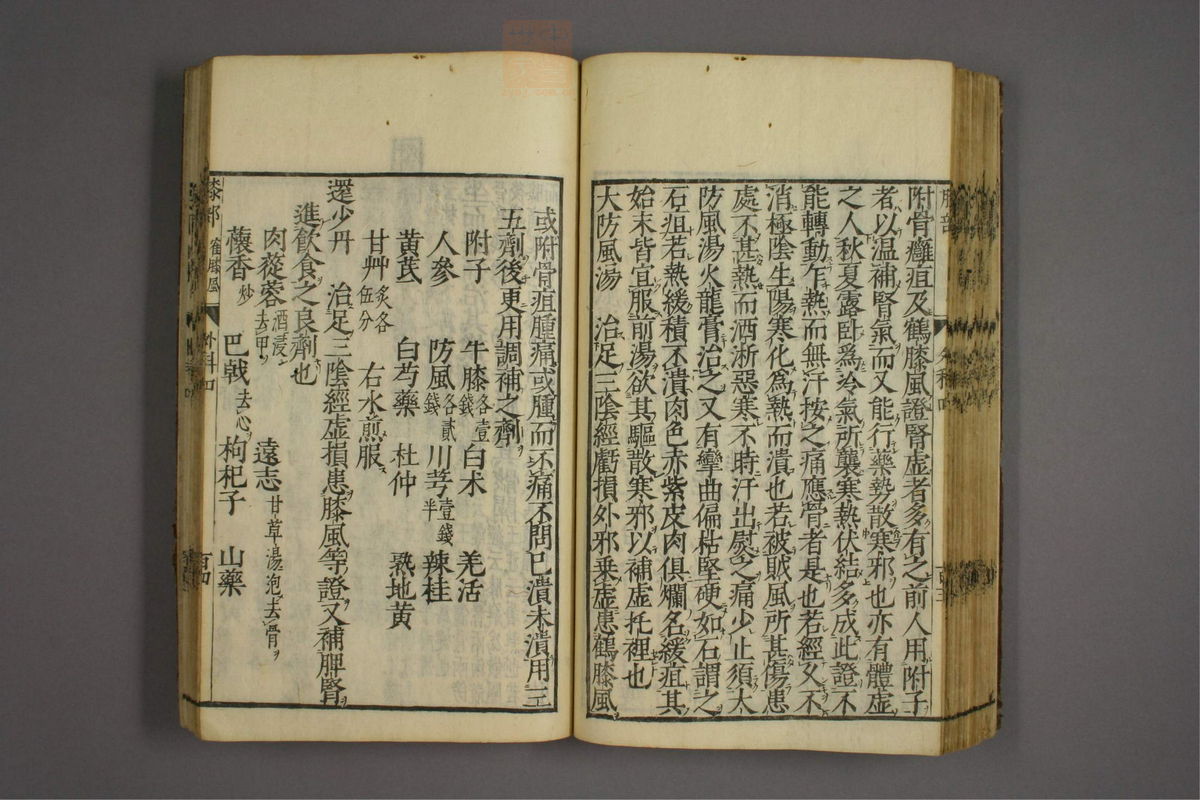 附骨癰疽及鶴膝風證腎虛者多有之前人用附子
者以温補腎氣而又能行藥勢散寒邪也亦有體虛
之人秋夏露臥爲冷氣所襲寒熱伏結多成此證不
能轉動乍熱而無汗按之痛應骨者是也若經久不
消極陰生陽寒化爲熱而潰也若被賊風所甚傷患
處不甚熱而洒淅惡寒不時汗出熨之痛少止須大
防風湯火龍膏治之又有攣曲偏枯堅硬如石謂之
石疽若熱緩積不潰肉色赤紫皮肉俱爛名緩疽其
始末皆宜服前湯欲其驅散寒邪以補虛托裡也
大防風湯 治足三陰經虧損外邪乗虛患鶴膝風
或附骨疽腫痛或腫而不痛不問已潰未潰用三
五劑後更用調補之劑
附子 牛膝各壹錢 白朮 羌活
人參 防風各貳錢 川芎壹錢半 辣桂
黄芪 白芍藥 杜仲 熟地黄
甘艸炙各伍分 右水煎服
還少丹 治足三陰經虚損患膝風等證又補脾腎
進飲食之良劑也
肉蓯蓉酒浸去甲 遠志甘草湯泡去骨
蘹香炒 巴戟去心 枸杞子 山藥
膝部 外科四 百四